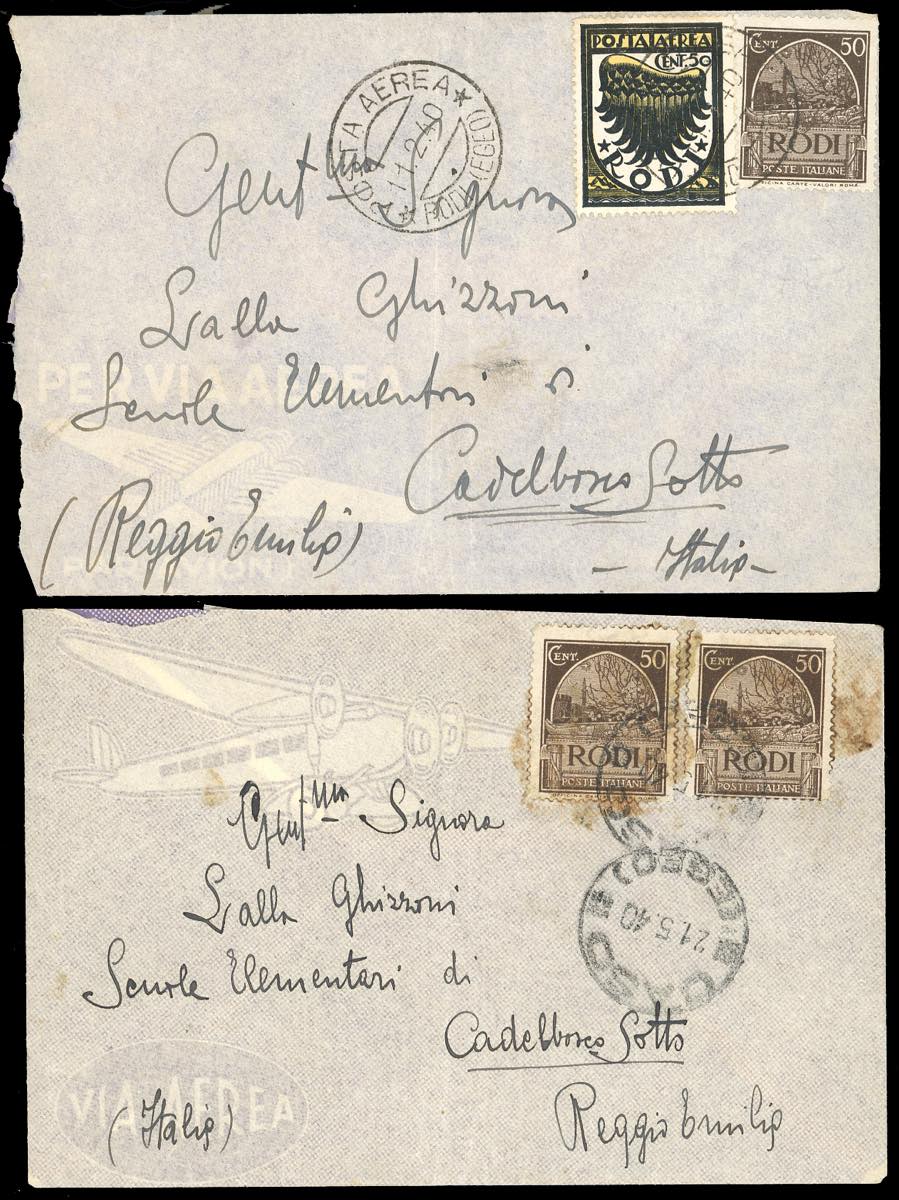 POSTA AEREA
CENT. 50
RODI
CENT. 50
RODI
POSTE ITALIANE
OFFICINA CARTE-VALORI ROMA
POSTA AEREA
11.2.40
RODI (EGEO)
40
Gent ma Signora
Lalla Ghizzoni
Scuole Elementari di
Cadelbosco Sotto
(Reggio Emilia)
- Italia -
PER VIA AEREA
PAR AVION
CENT. 50
RODI
POSTE ITALIANE
CENT. 50
RODI
POSTE ITALIANE
(EGEO)
21.5.40
Gent ma Signora
Lalla Ghizzoni
Scuole Elementari di
Cadelbosco Sotto
(Italia)
Reggio Emilia
VIA AEREA